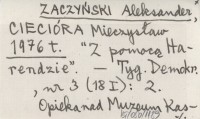 ZACZYŃSKI Aleksander,
CIECIÓRA Mieczysław
1976 r. "Z pomocą Ha-
rendzie". — Tyg. Demokr.
, nr 3 (18 I): 2.
Opieka nad Muzeum Kas-